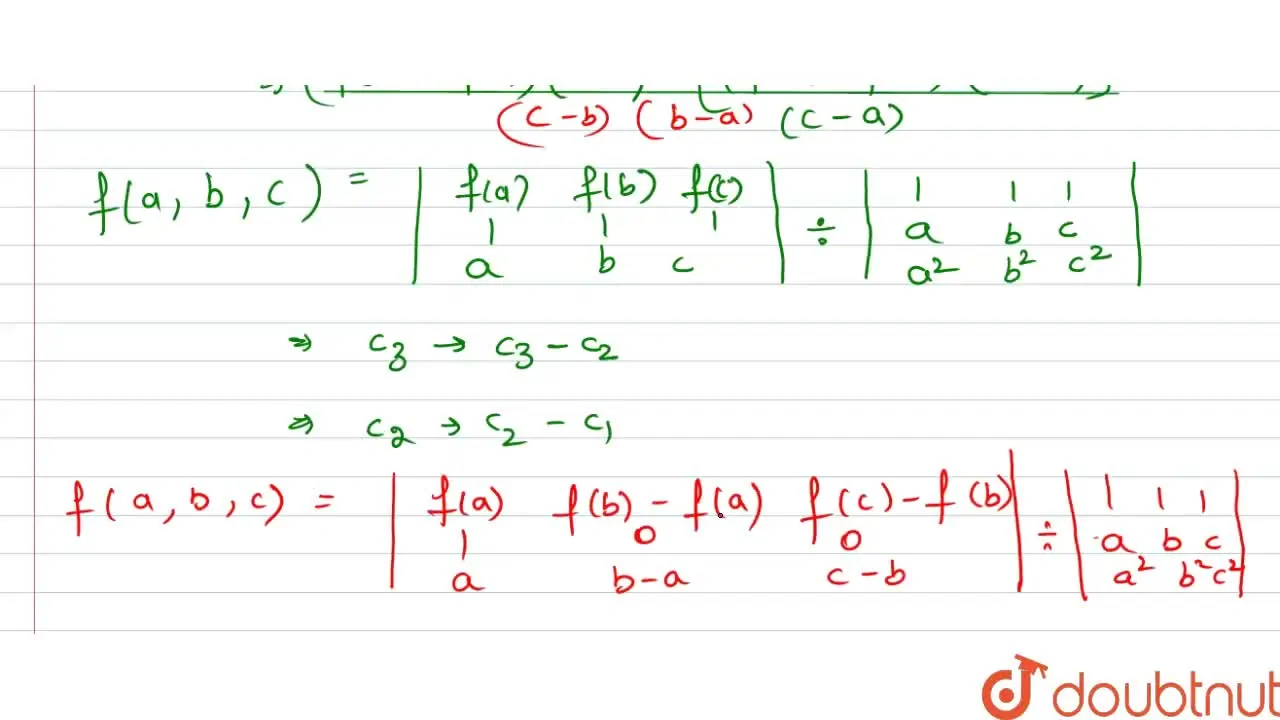 (c-b) (b-a) (c-a)
f(a, b, c) = | f(a) f(b) f(c) | ÷ | 1 1 1 |
1 1 1 a b c
a b c a² b² c²
⇒ c₃ → c₃ - c₂
⇒ c₂ → c₂ - c₁
f(a, b, c) = | f(a) f(b) - f(a) f(c) - f(b) | ÷ | 1 1 1 |
1 0 0 a b c
a b-a c-b a² b² c²
doubtnut